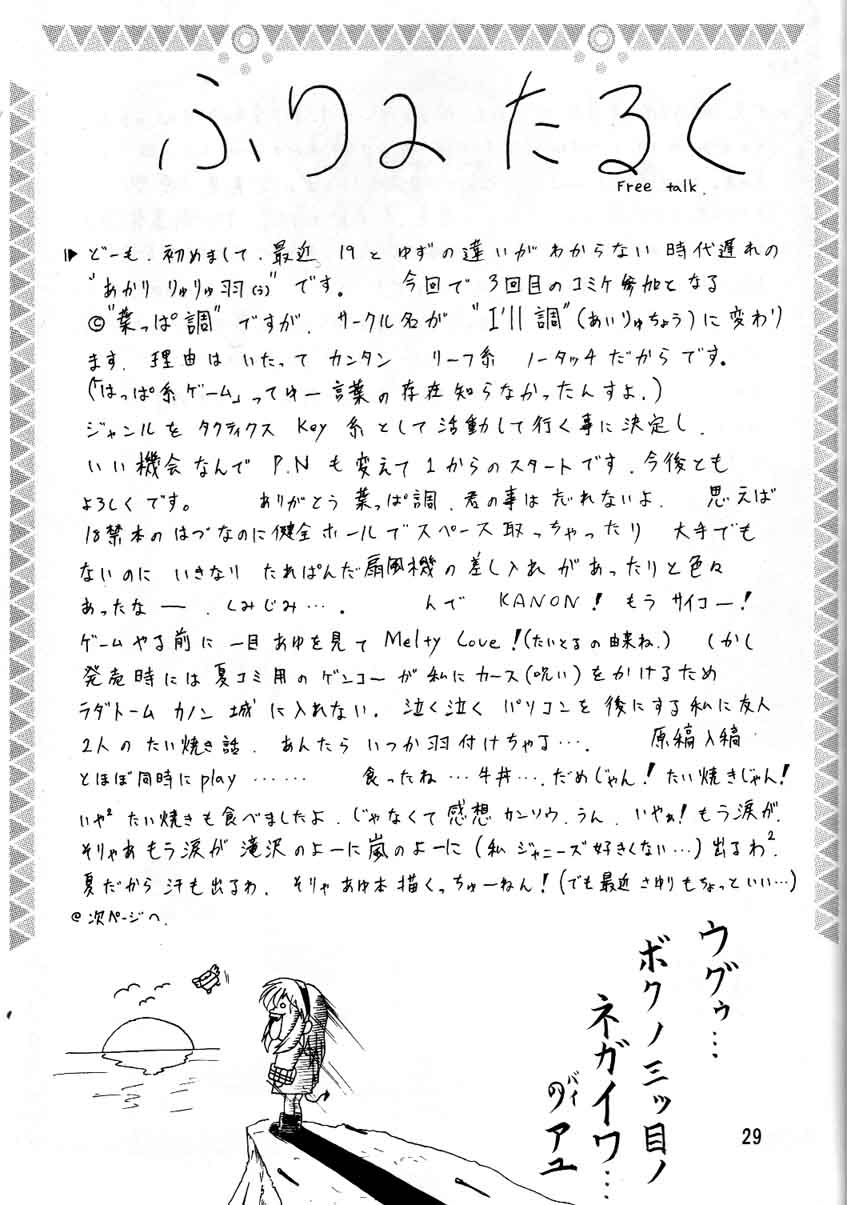 ふりぃたるく
Free talk.
どーも、初めまして、最近 19 と ゆずの違いが わからない 時代遅れの
"あかり りゅりゅ羽(う)" です。 今回で 3回目のコミケ参加となる
©"葉っぱ調" ですが、サークル名が "I'll 調"(あいりゅちょう)に変わり
ます、理由は いたって カンタン リーフ系 ノータッチだからです。
(「はっぱ系ゲーム」ってゆー言葉の存在知らなかったんすよ、)
ジャンルを タクティクス Key 系として活動して行く事に決定し、
いい機会なんで P.N も変えて 1からのスタートです、今後とも
よろしくです。 ありがとう 葉っぱ調、君の事は忘れないよ、 思えば
18禁本の はづなのに健全ホールでスペース取っちゃったり 大手でも
ないのに いきなり たれぱんだ扇風機の差し入れがあったりと色々
あったなー、しみじみ…。 んで KANON! もう サイコー!
ゲームやる前に 一目あゆを見て Melty Love!(たいとるの由来ね、) しかし
発売時には 夏コミ用の ゲンコーが 私にカース(呪い)をかけるため
ラダトーム カノン 城に入れない、泣く泣く パソコンを 後にする私に友人
2人のたい焼き話、あんたら いつか羽付けちゃる…、 原稿入稿
とほぼ同時にplay …… 食ったね…牛丼…、だめじゃん! たい焼きじゃん!
いや² たい焼きも食べましたよ、じゃなくて 感想 カンソウ、うん、いやぁ! もう涙が、
そりゃあ もう涙が 滝沢のよーに嵐のよーに(私 ジャニーズ好きくない…)出るわ²、
夏だから 汗も出るわ、そりゃ あゆ本描くっちゅーねん!(でも最近 さゆりもちょっといい…)
@次ページへ、
ウグゥ…
ボクノ三ッ目ノ
ネガイワ…
バイ
アユ
29